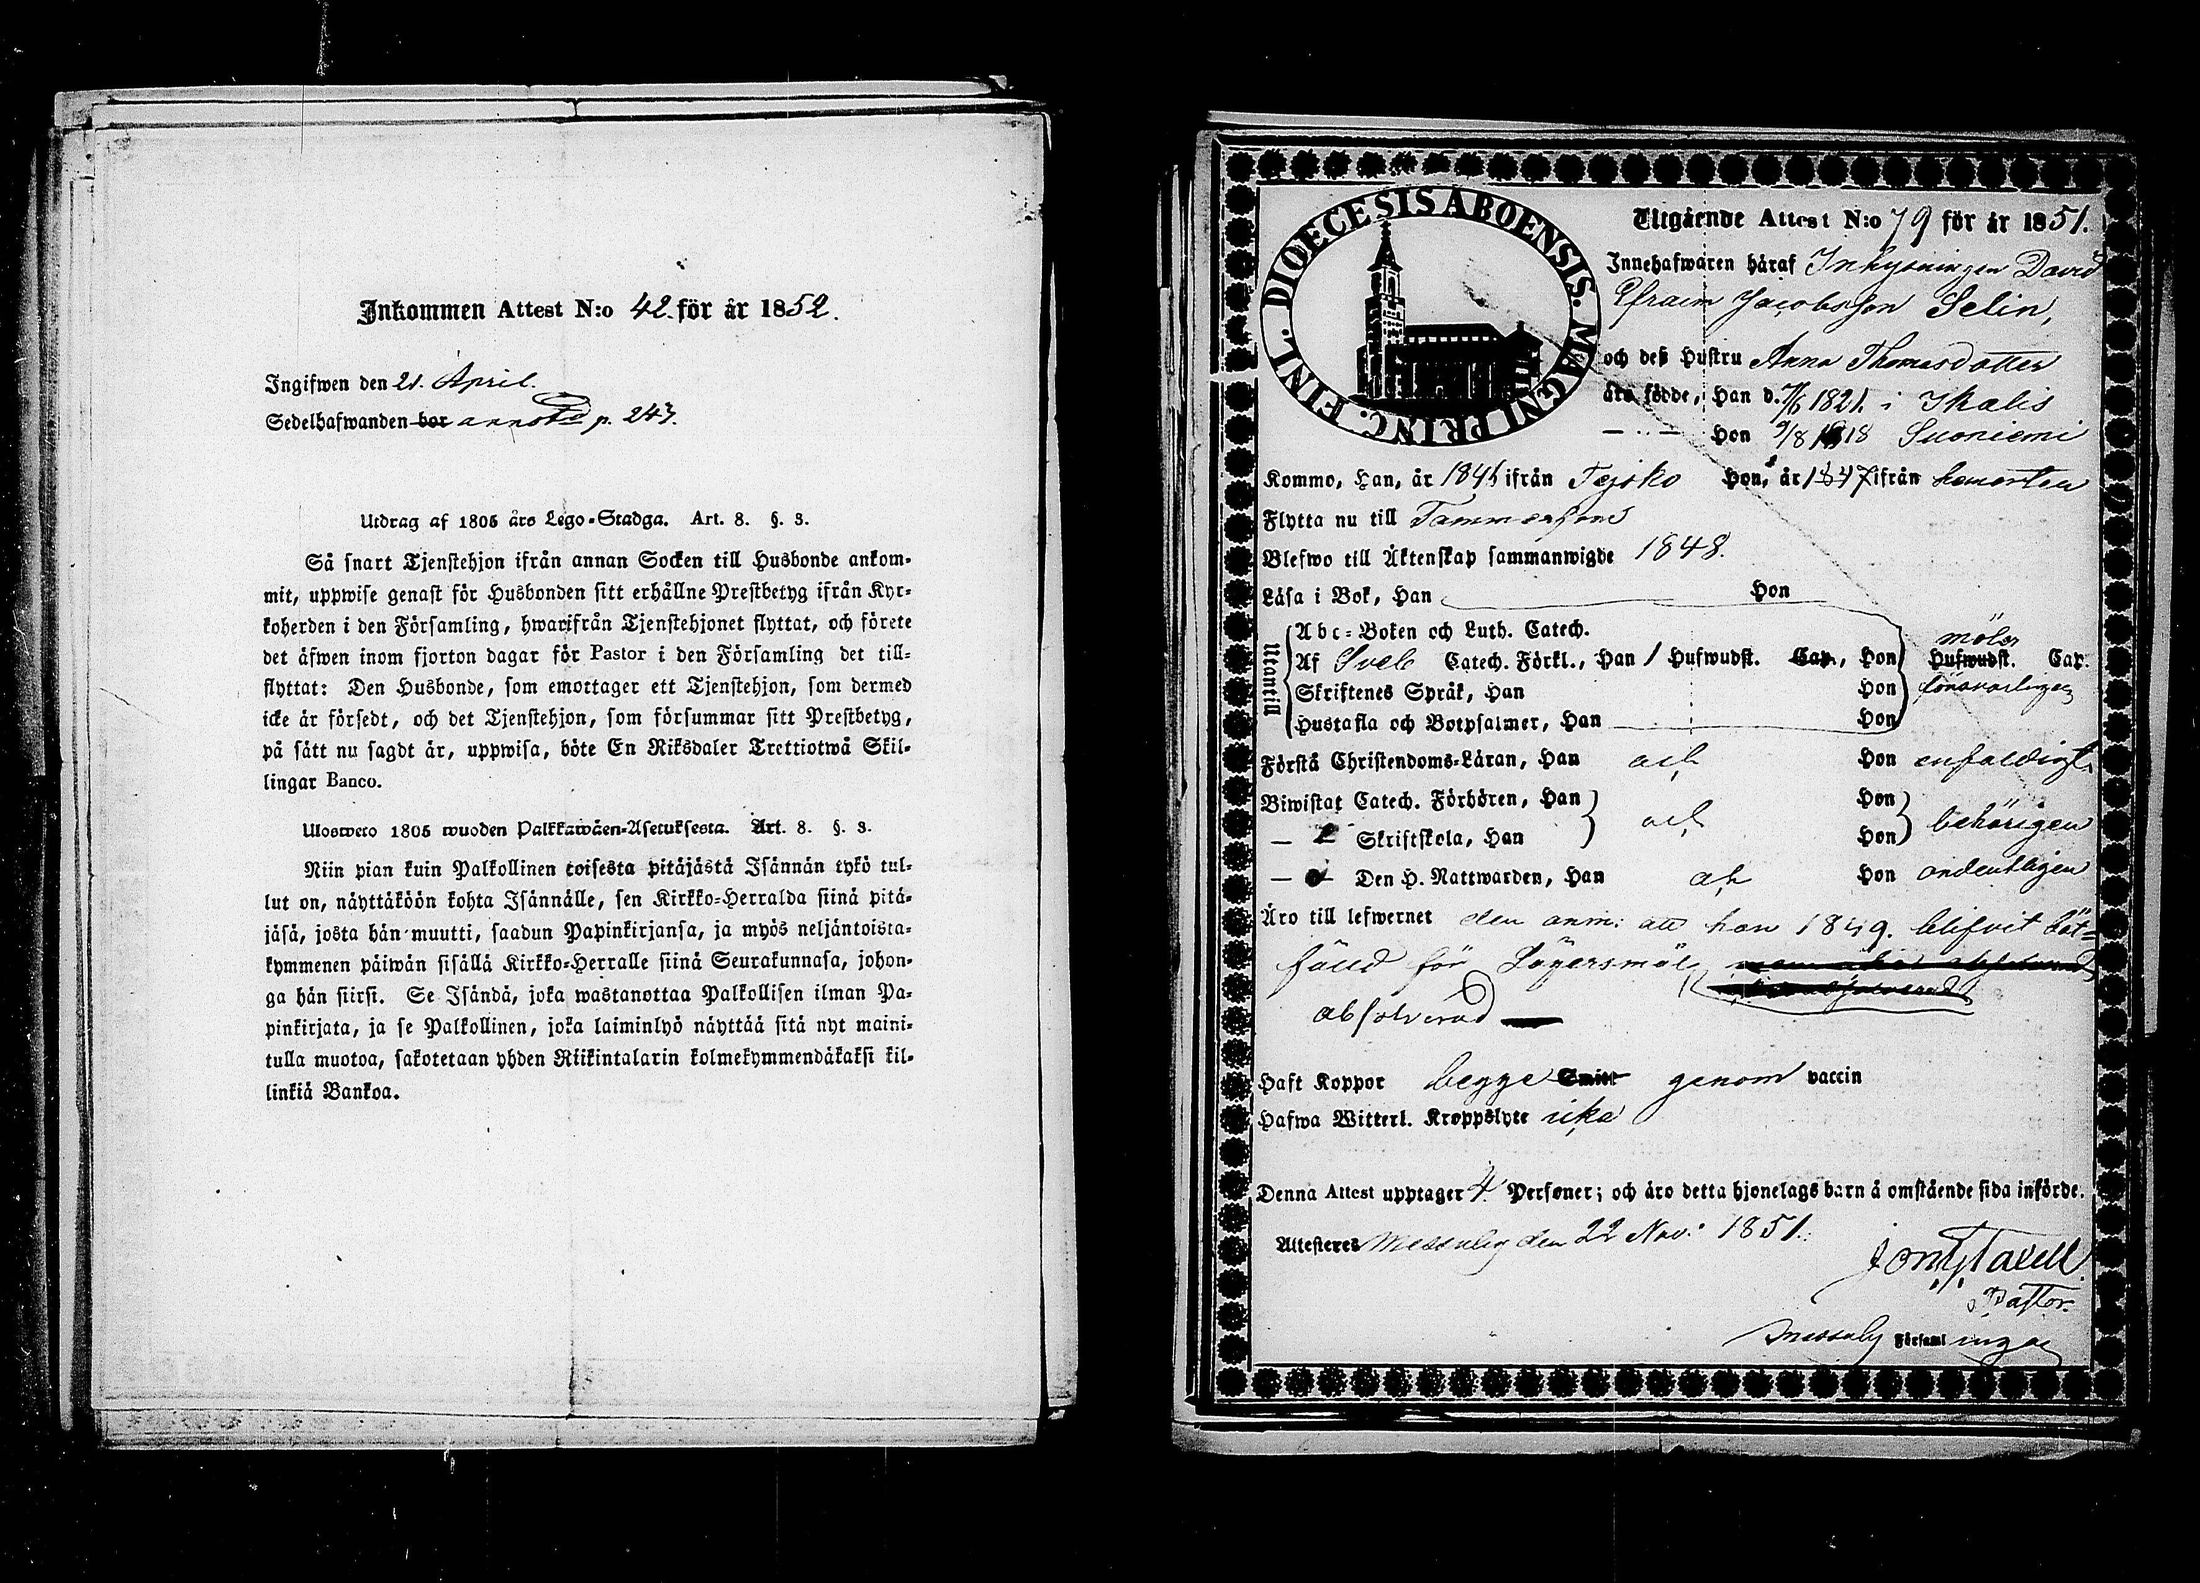 Inkommen Attest N:o 42. för år 1852.
Ingifwen den 21. April.
Sedelhafwanden bor annotd p. 247.
Utdrag af 1805 års Lego-Stadga. Art. 8. §. 3.
Så snart Tjenstehjon ifrån annan Socken till Husbonde ankom-
mit, uppwise genast för Husbonden sitt erhållne Prestbetyg ifrån Kyr-
koherden i den Församling, hwarifrån Tjenstehjonet flyttat, och förete
det äfwen inom fjorton dagar för Pastor i den Församling det till-
flyttat: Den Husbonde, som emottager ett Tjenstehjon, som dermed
icke är försedt, och det Tjenstehjon, som försummar sitt Prestbetyg,
på sätt nu sagdt är, uppwisa, böte En Riksdaler Trettiotwå Skil-
lingar Banco.
Ulosweto 1805 wuoden Palkkawäen-Asetuksesta. Art. 8. §. 3.
Niin pian kuin Palkollinen toisesta pitäjästä Isännän tykö tul-
lut on, näyttäköön kohta Isännälle, sen Kirkko-Herralda siinä pitä-
jäsä, josta hän muutti, saadun Papinkirjansa, ja myös neljäntoista-
kymmenen päiwän sisällä Kirkko-Herralle siinä Seurakunnasa, johon-
ga hän siirsi. Se Isändä, joka wastanottaa Palkollisen ilman Pa-
pinkirjata, ja se Palkollinen, joka laiminlyö näyttää sitä nyt maini-
tulla muotoa, sakotetaan yhden Riikintalarin kolmekymmendäkaksi kil-
linkiä Bankoa.
DIOECESIS ABOENSIS. MAGNI PRINC. FINL.
Utgående Attest N:o 79 för år 1851.
Innehafwaren häraf Inhysningen David
Efraim Jacobsson Selin,
och deß Hustru Anna Thomasdotter
äro födde, Han d. 7/6 1821. i Ikalis
— — Hon 9/8 1818 Suoniemi
Kommo, Han, år 1845 ifrån Tejsko Hon, år 1847 ifrån hemorten
Flytta nu till Tammerfors
Blefwo till Äktenskap sammanwigde 1848.
Läsa i Bok, Han Hon
Utantill
Abc-Boken och Luth. Catech.
Af Sveb Catech. Förkl., Han 1 Hufwudst. Cap., Hon Hufwudst. Cap.
Skriftenes Språk, Han Hon försvarligen
Hustafla och Botpsalmer, Han Hon
Förstå Christendoms-Läran, Han och Hon enfaldigt.
Biwistat Catech. Förhören, Han Hon
och behörigen
— Skriftskola, Han Hon
— Den H. Nattwarden, Han och Hon ordentligen
Äro till lefwernet den anm: att han 1849. blifvit böt=
fäld för Lägersmål
absolverad
Haft Koppor begge Smitt genom vaccin
Hafwa Witterl. Kroppslyte icke
Denna Attest upptager 4. Personer; och äro detta hjonelags barn å omstående sida införde.
Attesteres Messuby den 22 Nov: 1851.
Pastor.
Messuby Församlingen